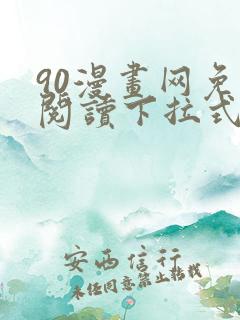 90漫畫网免
閱讀下拉式
安西信行
未经同意禁止转载